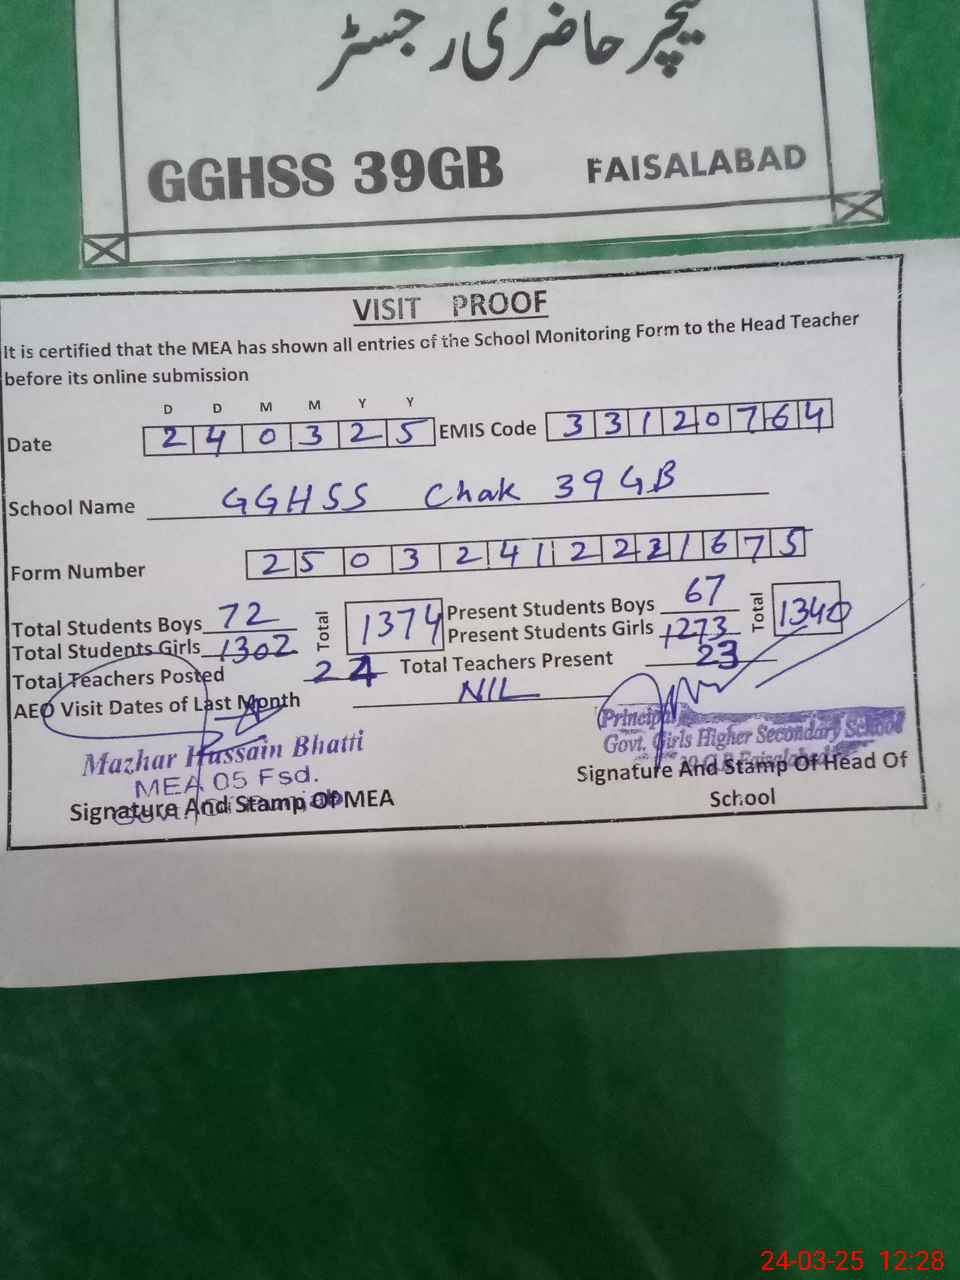 ٹیچر حاضری رجسٹر
GGHSS 39GB FAISALABAD
VISIT PROOF
It is certified that the MEA has shown all entries of the School Monitoring Form to the Head Teacher
before its online submission
D D M M Y Y
Date 2 4 0 3 2 5 EMIS Code 3 3 1 2 0 7 6 4
School Name GGHSS Chak 39 GB
Form Number 2 5 0 3 2 4 1 2 2 2 1 6 7 5
Total Students Boys 72 Total 1374 Present Students Boys 67 Total 1340
Total Students Girls 1302 Present Students Girls 1273
Total Teachers Posted 24 Total Teachers Present 23
AEO Visit Dates of Last Month NIL
Mazhar Hussain Bhatti
MEA 05 Fsd.
Signature And Stamp Of MEA
Principal
Govt. Girls Higher Secondary School
Signature And Stamp Of Head Of
School
24-03-25 12:28